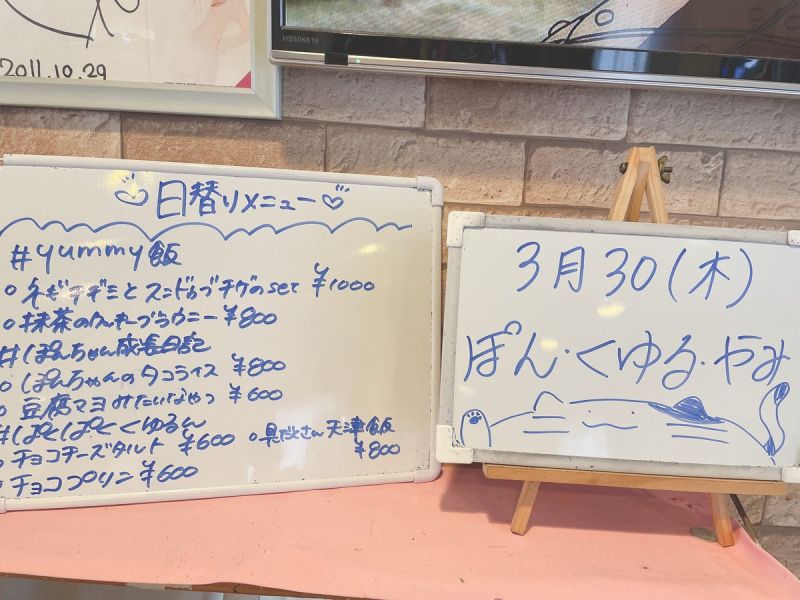 2011.10.29
HS50K610
日替りメニュー
#yummy飯
○ネギチヂミとスンドゥブチゲのset ¥1000
○抹茶のクッキーブラウニー ¥800
#ぽんちゃん成長日記
○ぽんちゃんのタコライス ¥800
○豆腐マヨみたいなやつ ¥600
#ぱくぱくくゆるん
○チョコチーズタルト ¥600 ○具だくさん天津飯 ¥800
○チョコプリン ¥600
3月30(木)
ぽん・くゆる・やみ